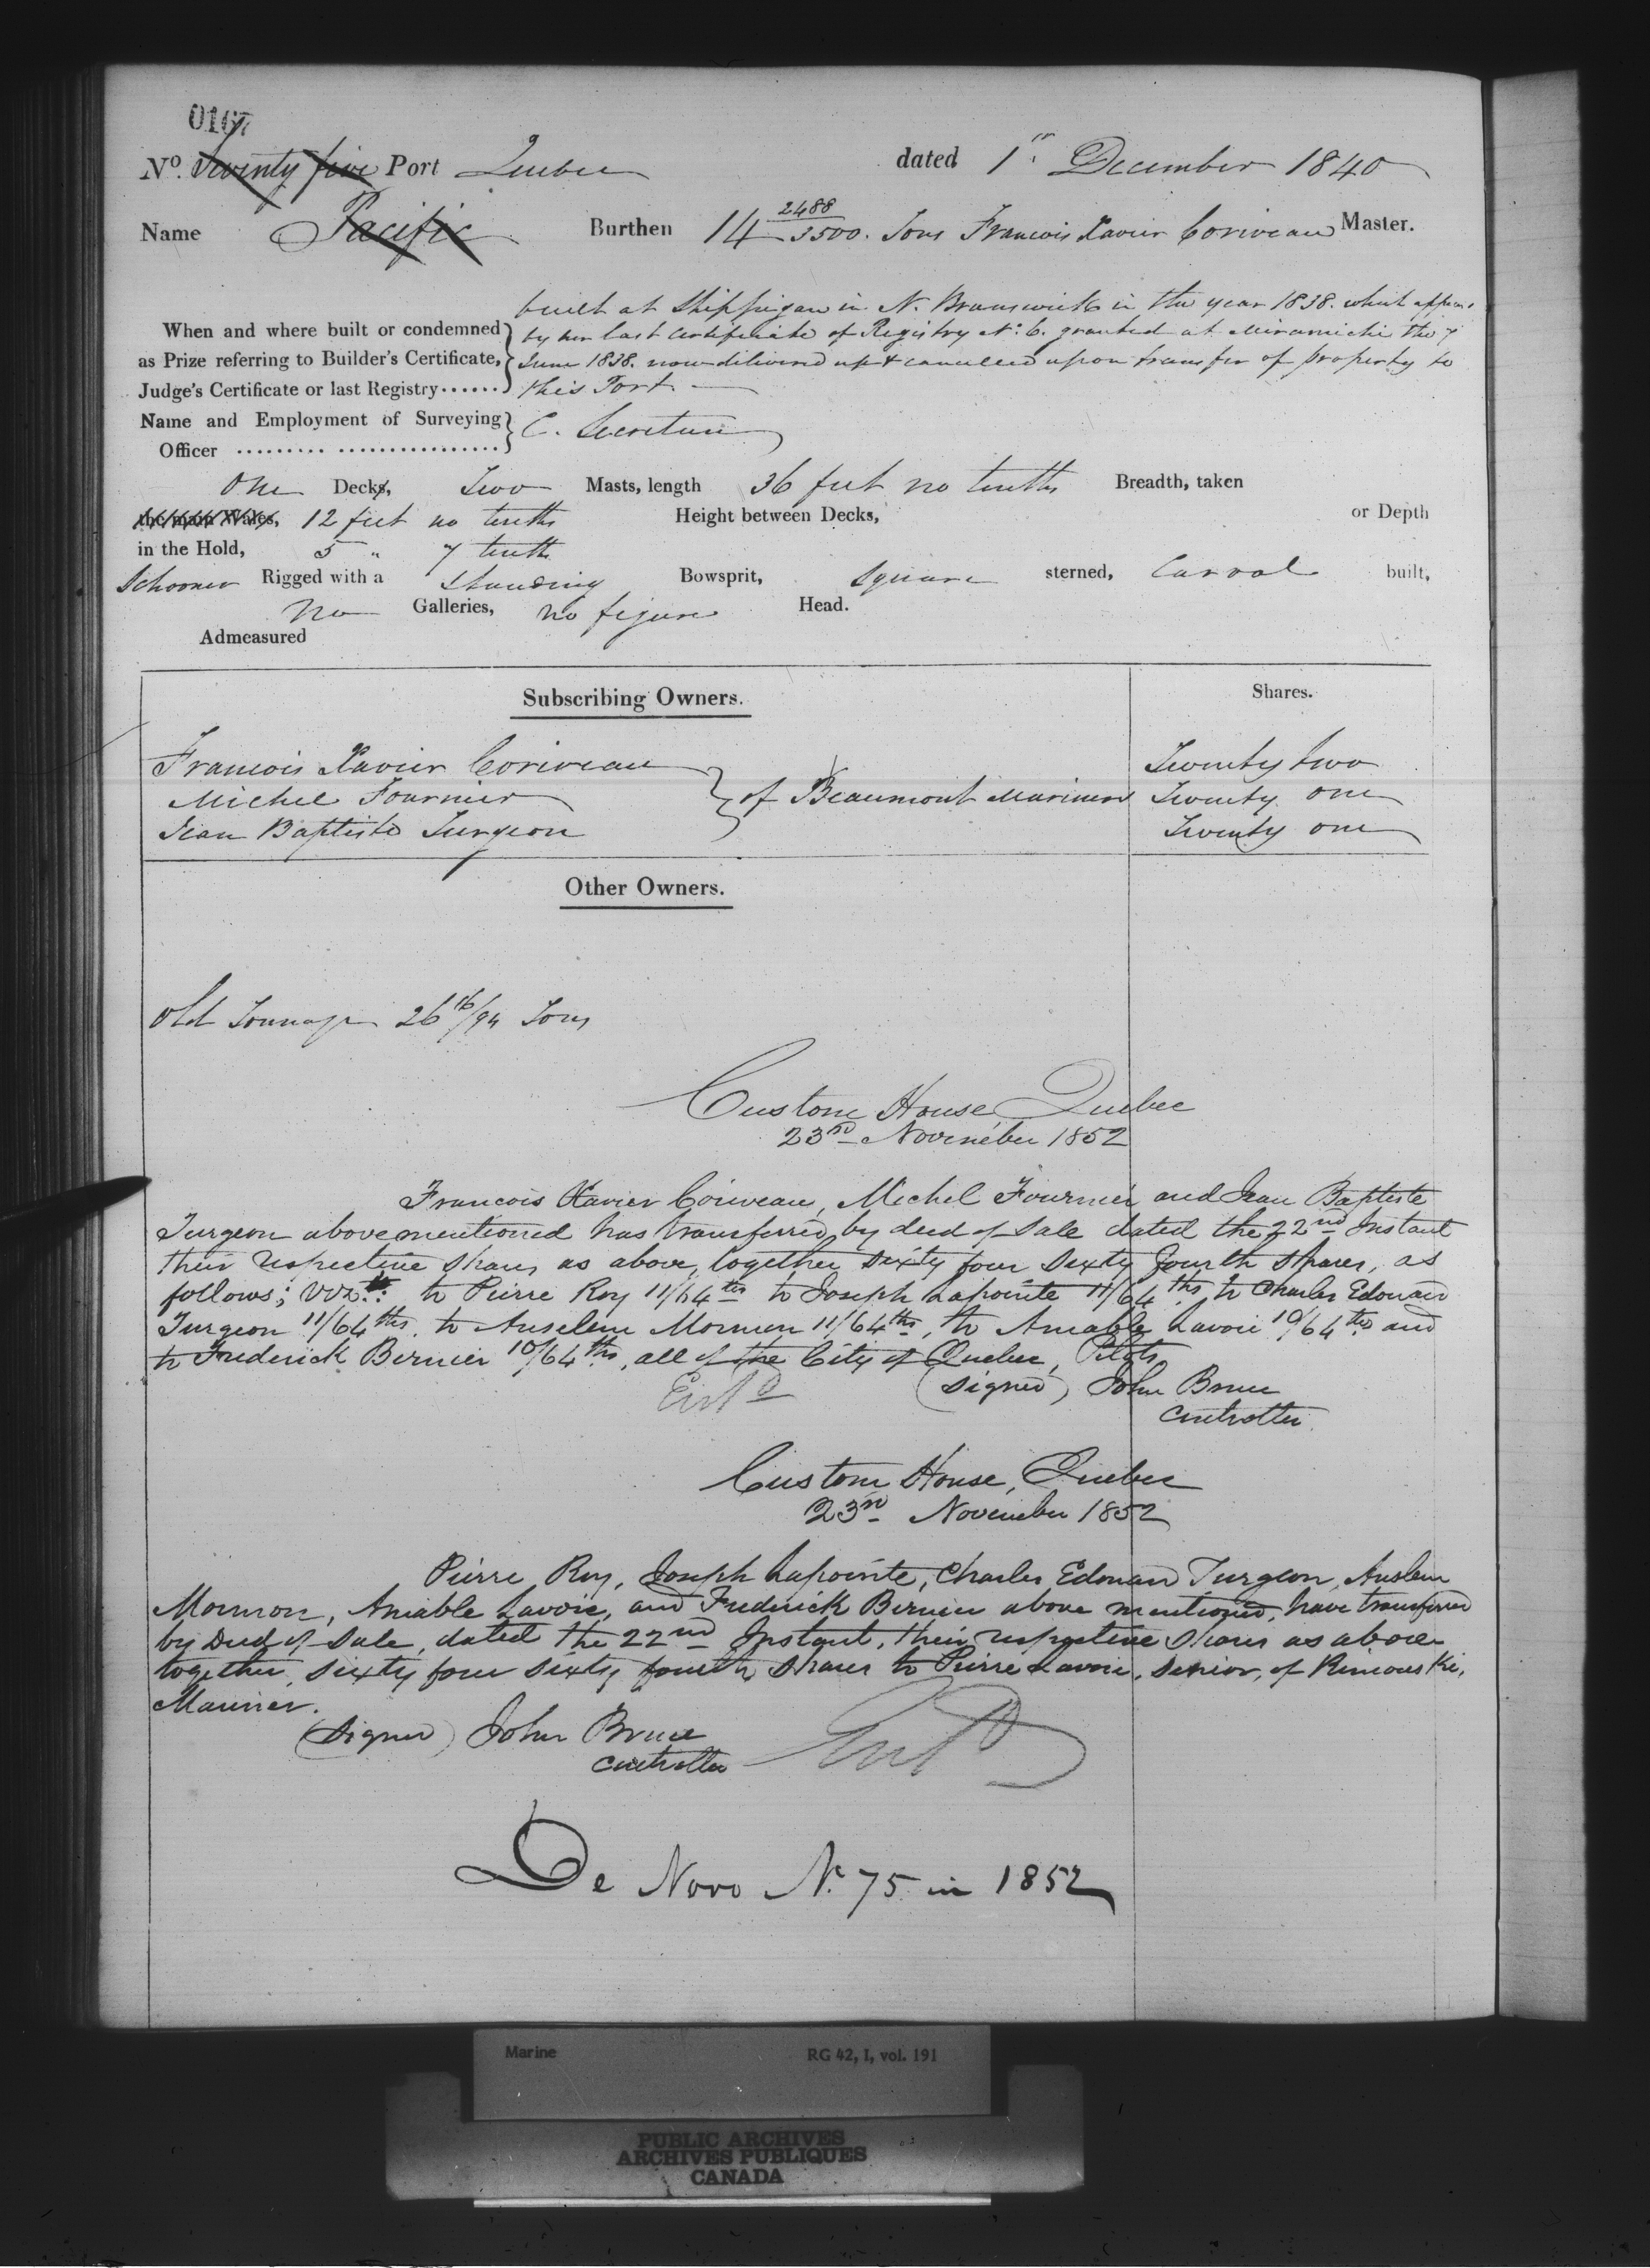 0167
No. Seventy five Port Quebec dated 1st December 1840
Name Pacific Burthen 14 2488/3500 Tons Francois Xavier Coriveau Master.
built at Shippigan in N. Brunswick in the year 1838. which appears
When and where built or condemned by her last Certificate of Registry No. 6. granted at Miramichi the 7
as Prize referring to Builder's Certificate, June 1838. now delivered up & cancelled upon transfer of property to
Judge's Certificate or last Registry...... this Port.
Name and Employment of Surveying
Officer ......... ................ C. Secretan
One Decks, Two Masts, length 36 feet no tenths Breadth, taken
the main Wales, 12 feet no tenths Height between Decks, or Depth
in the Hold, 5 " 7 tenths
Schooner Rigged with a Standing Bowsprit, Square sterned, Carvel built,
no Galleries, no figure Head.
Admeasured
Subscribing Owners. Shares.
Francois Xavier Coriveau Twenty two
Michel Fournier of Beaumont Mariners Twenty one
Jean Baptiste Turgeon Twenty one
Other Owners.
Old Tonnage 26 16/94 Tons
Custom House, Quebec
23rd November 1852
Francois Xavier Coriveau, Michel Fournier and Jean Baptiste
Turgeon above mentioned has transferred by deed of Sale dated the 22nd Instant
their respective Shares as above, together sixty four sixty fourth shares, as
follows; vizt: to Pierre Roy 11/64ths to Joseph Lapointe 11/64ths, to Charles Edouard
Turgeon 11/64ths, to Anselem Mormon 11/64ths, to Amable Lavoie 10/64ths and
to Frederick Bernier 10/64ths, all of the City of Quebec, Pilots
Entd (Signed) John Bruce
Controller
Custom House, Quebec
23rd November 1852
Pierre Roy, Joseph Lapointe, Charles Edouard Turgeon, Anslem
Mormon, Amable Lavoie, and Frederick Bernier above mentioned, have transferred
by Deed of Sale, dated the 22nd Instant, their respective Shares as above
together, sixty four sixty fourth shares to Pierre Lavoie, Senior, of Rimouski,
Mariner.
(Signed) John Bruce
Controller Entd
De Novo No. 75 in 1852
Marine RG 42, I, vol. 191
PUBLIC ARCHIVES
ARCHIVES PUBLIQUES
CANADA